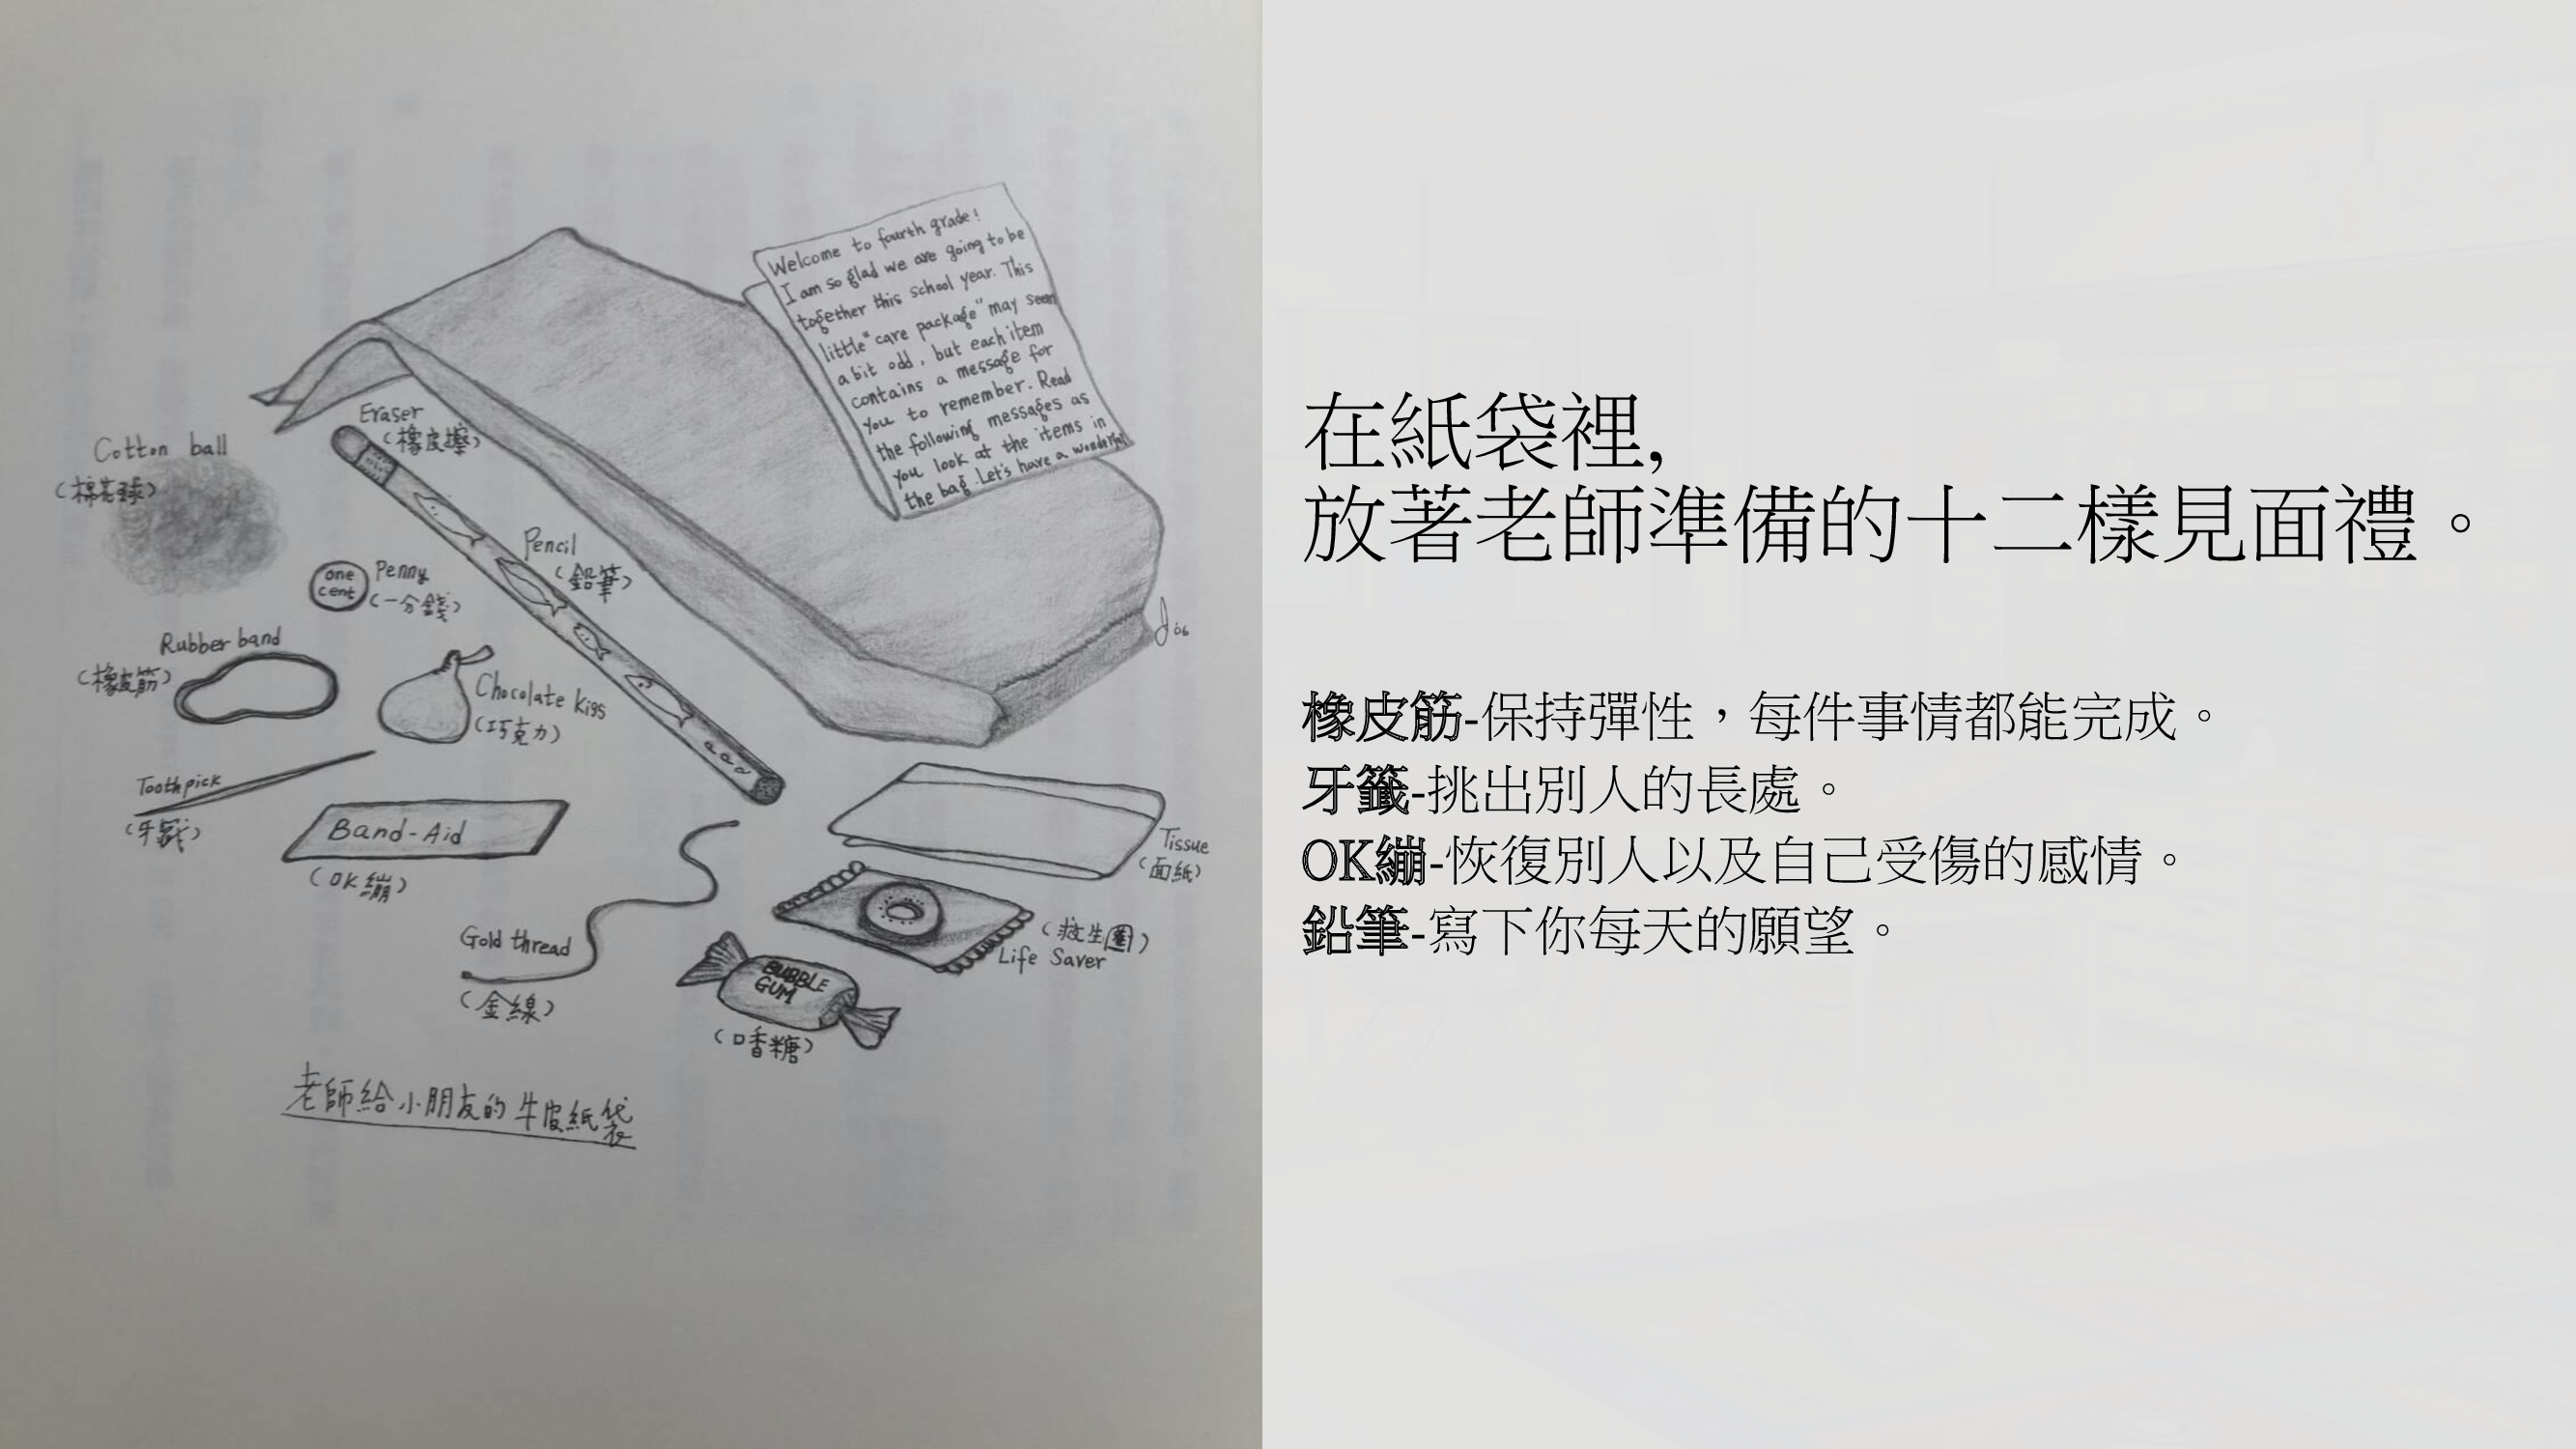 Welcome to fourth grade!
I am so glad we are going to be
together this school year. This
little "care package" may seem
a bit odd, but each item
contains a message for
you to remember. Read
the following messages as
you look at the items in
the bag. Let's have a wonderful
Eraser
(橡皮擦)
Cotton ball
(棉花球)
Pencil
(鉛筆)
one
cent
Penny
(一分錢)
Rubber band
(橡皮筋)
Chocolate Kiss
(巧克力)
Toothpick
(牙籤)
Band-Aid
(OK繃)
Tissue
(面紙)
Gold thread
(金線)
(救生圈)
Life Saver
BUBBLE
GUM
(口香糖)
老師給小朋友的牛皮紙袋
在紙袋裡,
放著老師準備的十二樣見面禮。
橡皮筋-保持彈性，每件事情都能完成。
牙籤-挑出別人的長處。
OK繃-恢復別人以及自己受傷的感情。
鉛筆-寫下你每天的願望。